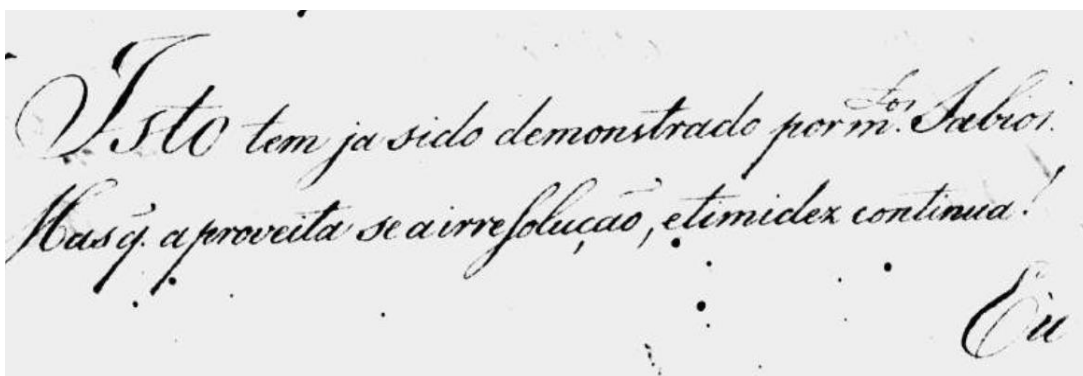 Isto tem ja sido demonstrado por m.tos Sabios.
Mas q̃. aproveita se a irresolução, e timidez continua!
Eu